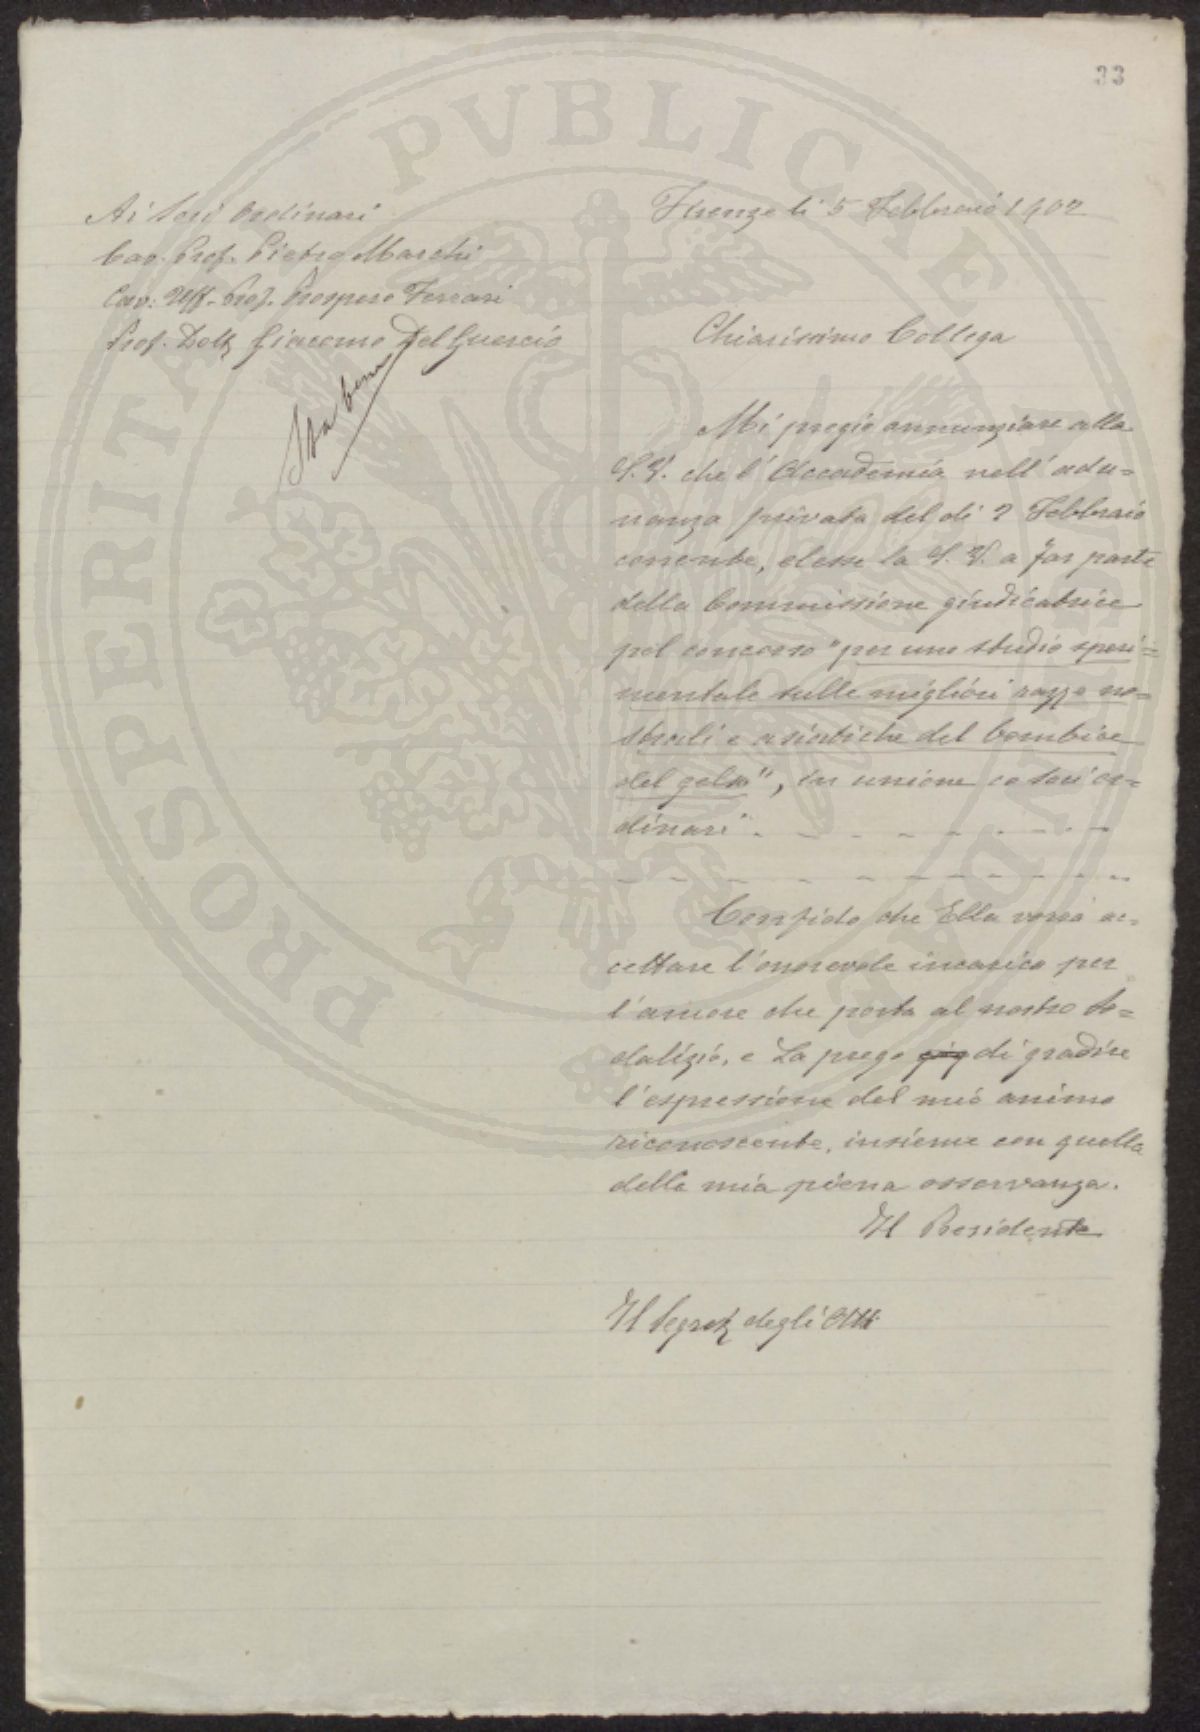 33
Ai Soci Ordinari
Cav. Prof. Pietro Marchi
Cav: Uff. Prof. Prospero Ferrari
Prof. Dott Giacomo Del Guercio
Sta bene
Firenze li 5 Febbraio 1902
Chiarissimo Collega
Mi pregio annunziare alla
S.V. che l'Accademia nell'adu=
nanza privata del dì 2 Febbraio
corrente, elesse la S.V. a far parte
della Commissione giudicatrice
pel concorso "per uno studio speri=
mentale sulle migliori razze no=
strali e asiatiche del bombice
del gelso", in unione co soci or=
dinari
Confido che Ella vorrà ac=
cettare l'onorevole incarico per
l'amore che porta al nostro So=
dalizio, e La prego di gradire
l'espressione del mio animo
riconoscente, insieme con quella
della mia piena osservanza.
Il Presidente
Il Segret degli Atti
PROSPERITATI PVBLICAE AVGENDAE